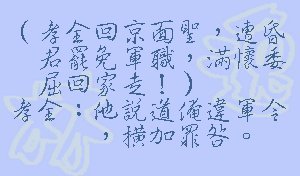 （孝全回京面聖，連昏
君罷免軍職，滿懷委
屈回家走！）
孝全：他説道俺違軍令
，橫加罪咎。